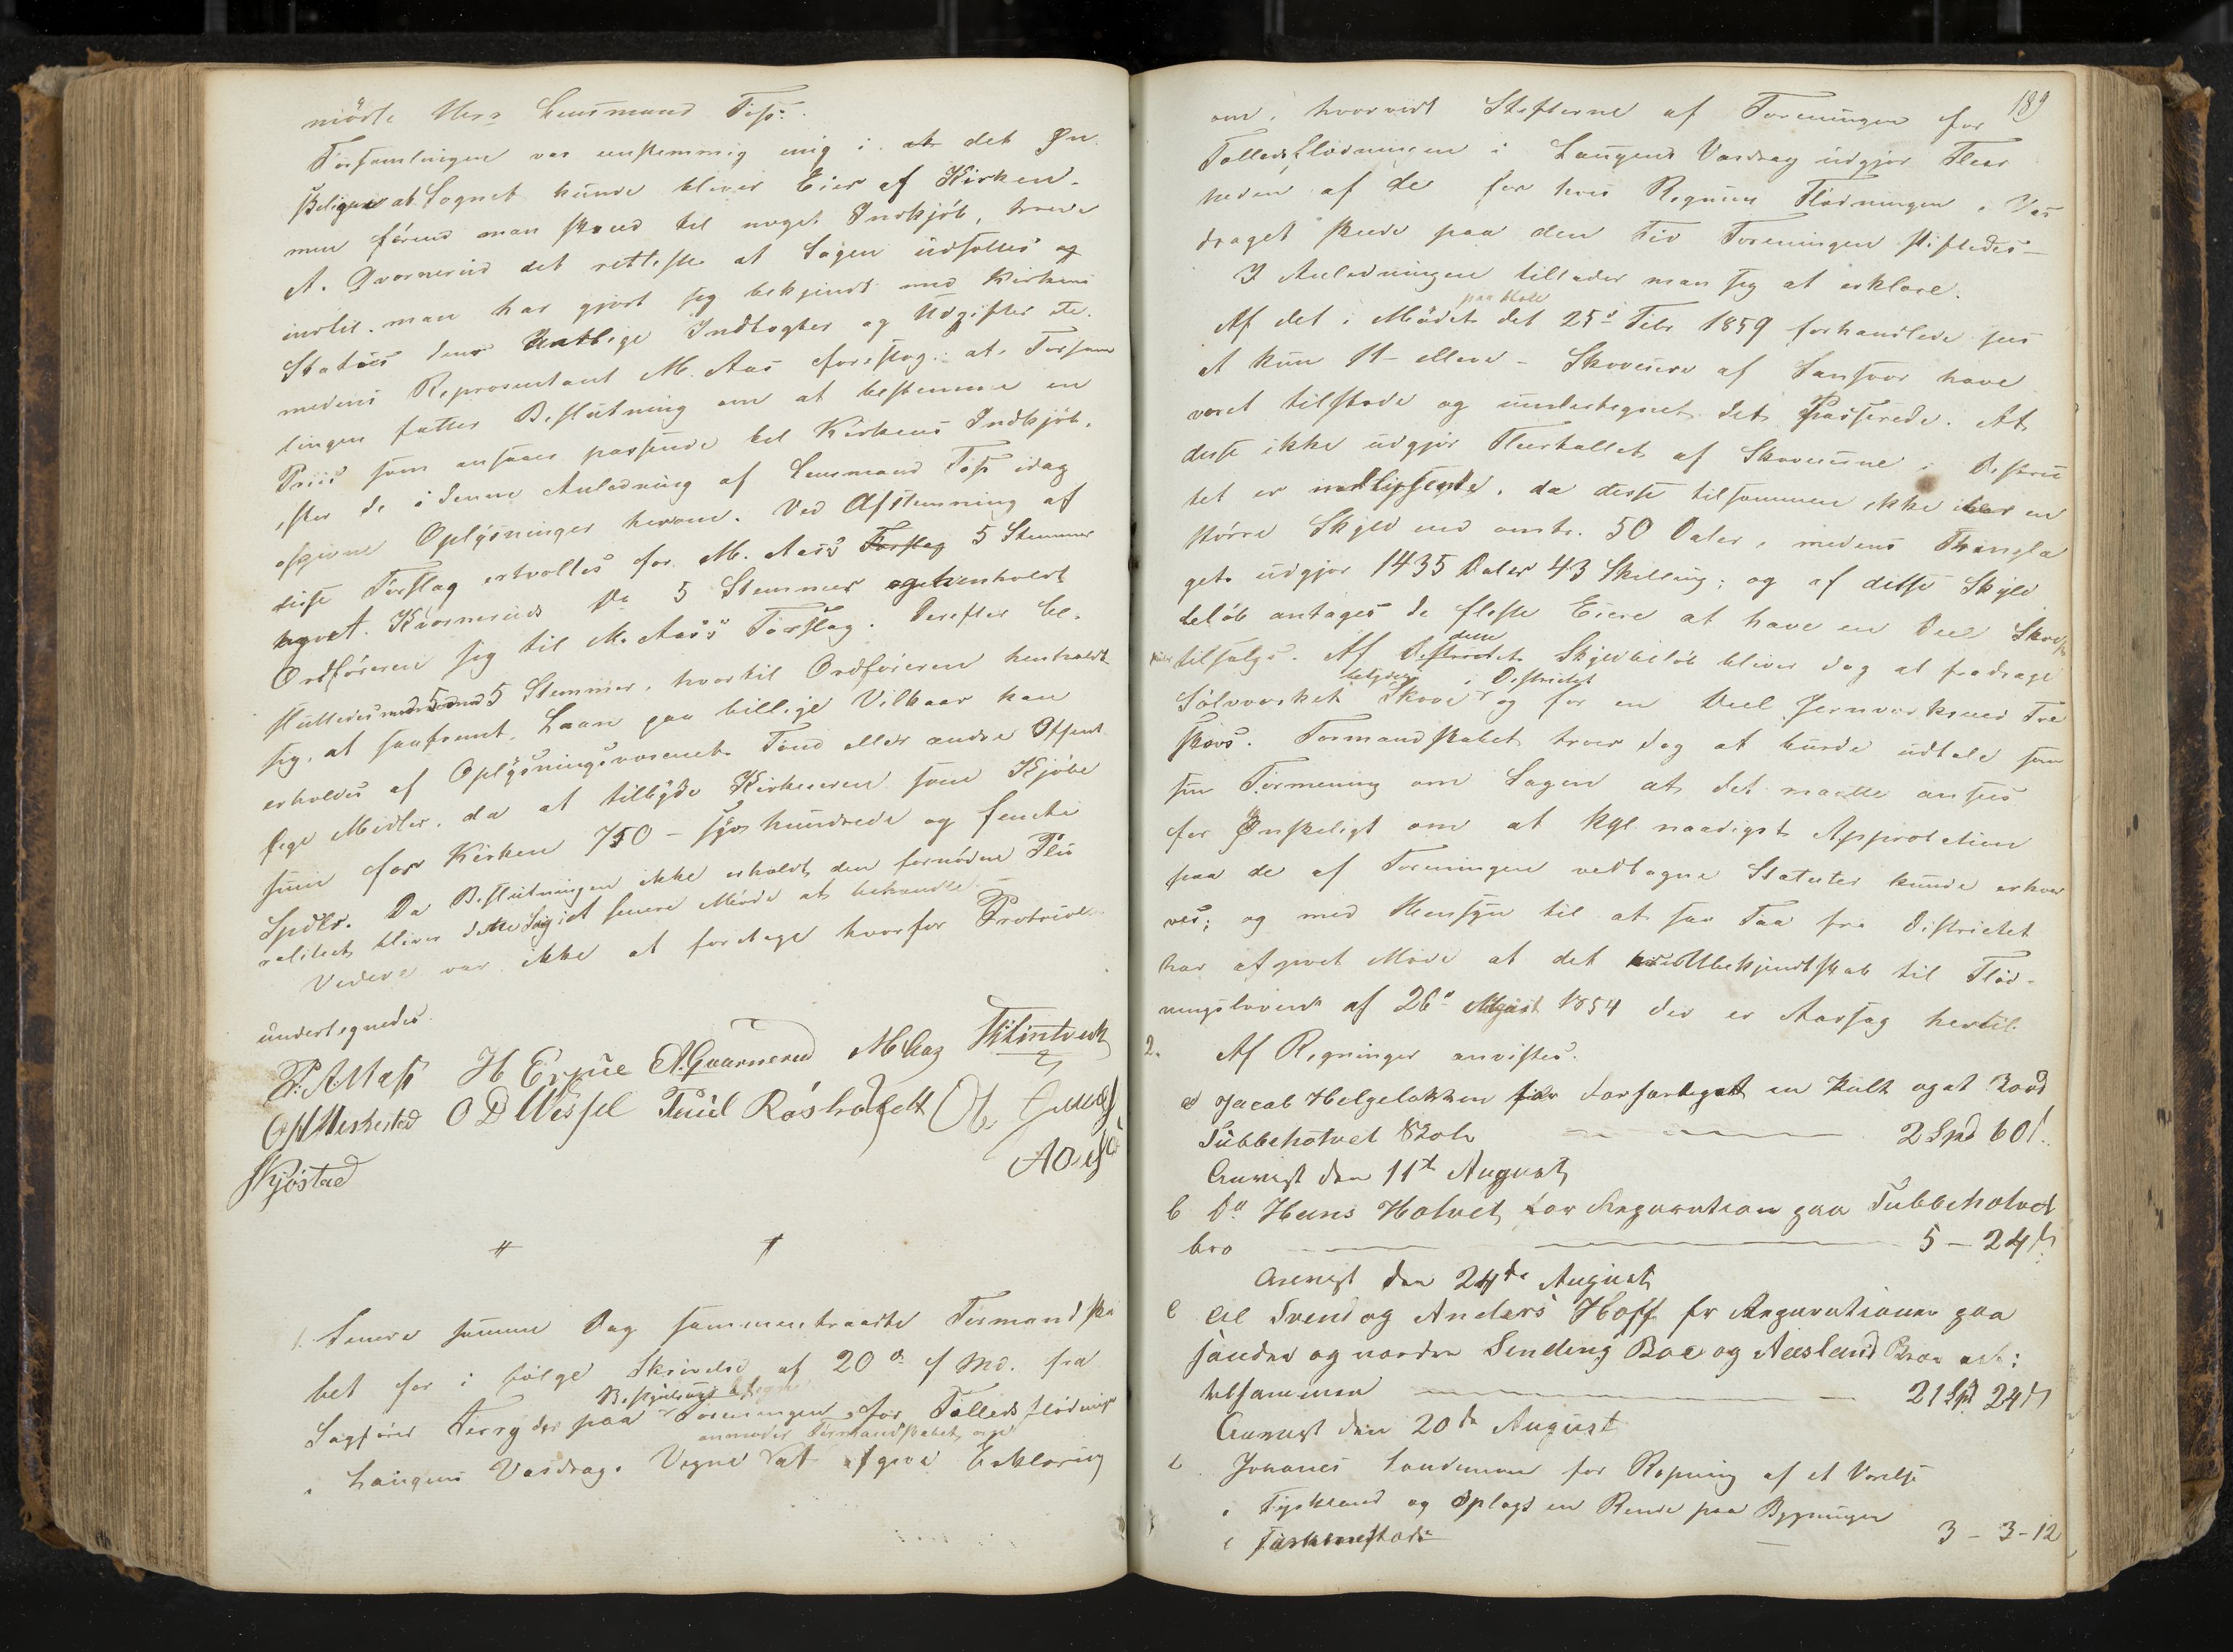 mödte Herr Lensmand Foss.
Forsamlingen var eenstemmig enig i at det Øn-
skeligste at Sognet kunde bliver Eier af Kirken.
men förend man skred til noget Indkjöb, troede
A. Qvarnerud det retteste at Sagen udsattes og
indtil man har gjort sig bekjendt med Kirkens
Status dens Indtægter og Udgifter etc.
medens Repræsentant M. Aas foreslog: at Forsam-
lingen fatter Beslutning om at bestemme en
Priis som ansaaes passende til Kirkens Indkjöb,
efter de i denne Anledning af Lensmand Foss idag
afgivne Oplysninger herom. Ved Afstemning af
disse Forslag erholdtes for M. Aas's Forslag 5 Stemmer
Qvarneruds do 5 Stemmer henholdt
Ordföreren sig til M. Aas's Forslag. Derefter be-
sluttedes med 5 mod 5 Stemmer, hvortil Ordföreren henholdt
sig, at saafremt Laan paa billige Vilkaar kan
erholdes af Oplysningsvæsenets Fond eller andre Offent-
lige Midler, da at tilbyde Kirkeeieren som Kjöbe
sum for Kirken 750 - syv hundrede og femti
Spdlr. Da Beslutningen ikke erholdt den fornödne Plu-
ralitet bliver denne Sag i et senere Möde at behandle.
Videre var ikke at foretage hvorfor Protocol
undertegnedes.
H Ergue A. Qvarnerud M Aas
O D Wessel Truid Röshol
Skjöstad
1. Senere samme Dag sammentraadte Formandska-
bet for i fölge Skrivelse af 20de f Md. fra
Bestyrelsens
Sagförer paa Foreningen for Fælledsflödning
anmoder Formandskabet om
i Laugens Vasdrag Vegne at afgive Erklæring
189
om, hvorvidt Stifterne af Foreningen for
Fælledsflödningen i Laugens Vasdrag udgjör Fleer
heden af de for hvis Regning Flödningen i Vas
draget skede paa den Tid Foreningen stiftedes -
I Anledningen tillader man sig at erklære.
paa
Af det i Mödet det 25de Febr 1859 forhandlede sees
at kun 11 - elleve - Skoveiere af Sansvær have
været tilstede og undertegnet det Passerede. At
disse ikke udgjör Fleertallet af Skoveierne i Distric
tet er indlysende, da disse tilsammen ikke har en
större Skyld end omtr. 50 Daler, medens Thinglag
get udgjör 1435 Daler 43 Skilling; og af disse Skyld
belöb antages de fleste Eiere at have en Deel Skov
dem
tilfalgs. Af Districtets Skyldbelöb bliver dog at fradrage
betydelige i Districtet
Sölvværket Skove og for en Deel Jernværkernes Træ
skove. Formandskabet troer dog at burde udtale som
sin Formening om Sagen at det maatte ansees
for Ønskeligt om at kgl. naadigst Approbation
paa de af Foreningen vedtagne Statuter kunde erhver
ves; og med Hensyn til at saa Faa fra Districtet
har afgivet Möde at det Ubekjendtskab til Flöd-
ningsloven af 26de August 1854 der er Aarsag hertil.
2. Af Regninger anvistes:
a Jacob Helgelakken for Forfærdiget en Kult og at Raad
Tubbeholvet 2 Spd 60 s.
Anvist den 11te August
b Do Hans Holvet for Reparation paa Tubbeholvet
bro 5 - 24 s
Anvist den 24de August
c til Svend og Anders Hoff for Reparationer paa
söndre og nordre Sending Broe og Aasland Broe
tilsammen 21 Spd 24 s
Anvist den 20de August
Johanes Landmann for Rapning af et Værelse
i og Oplagt en Rende paa Bygningen
i 3 - 3 - 12